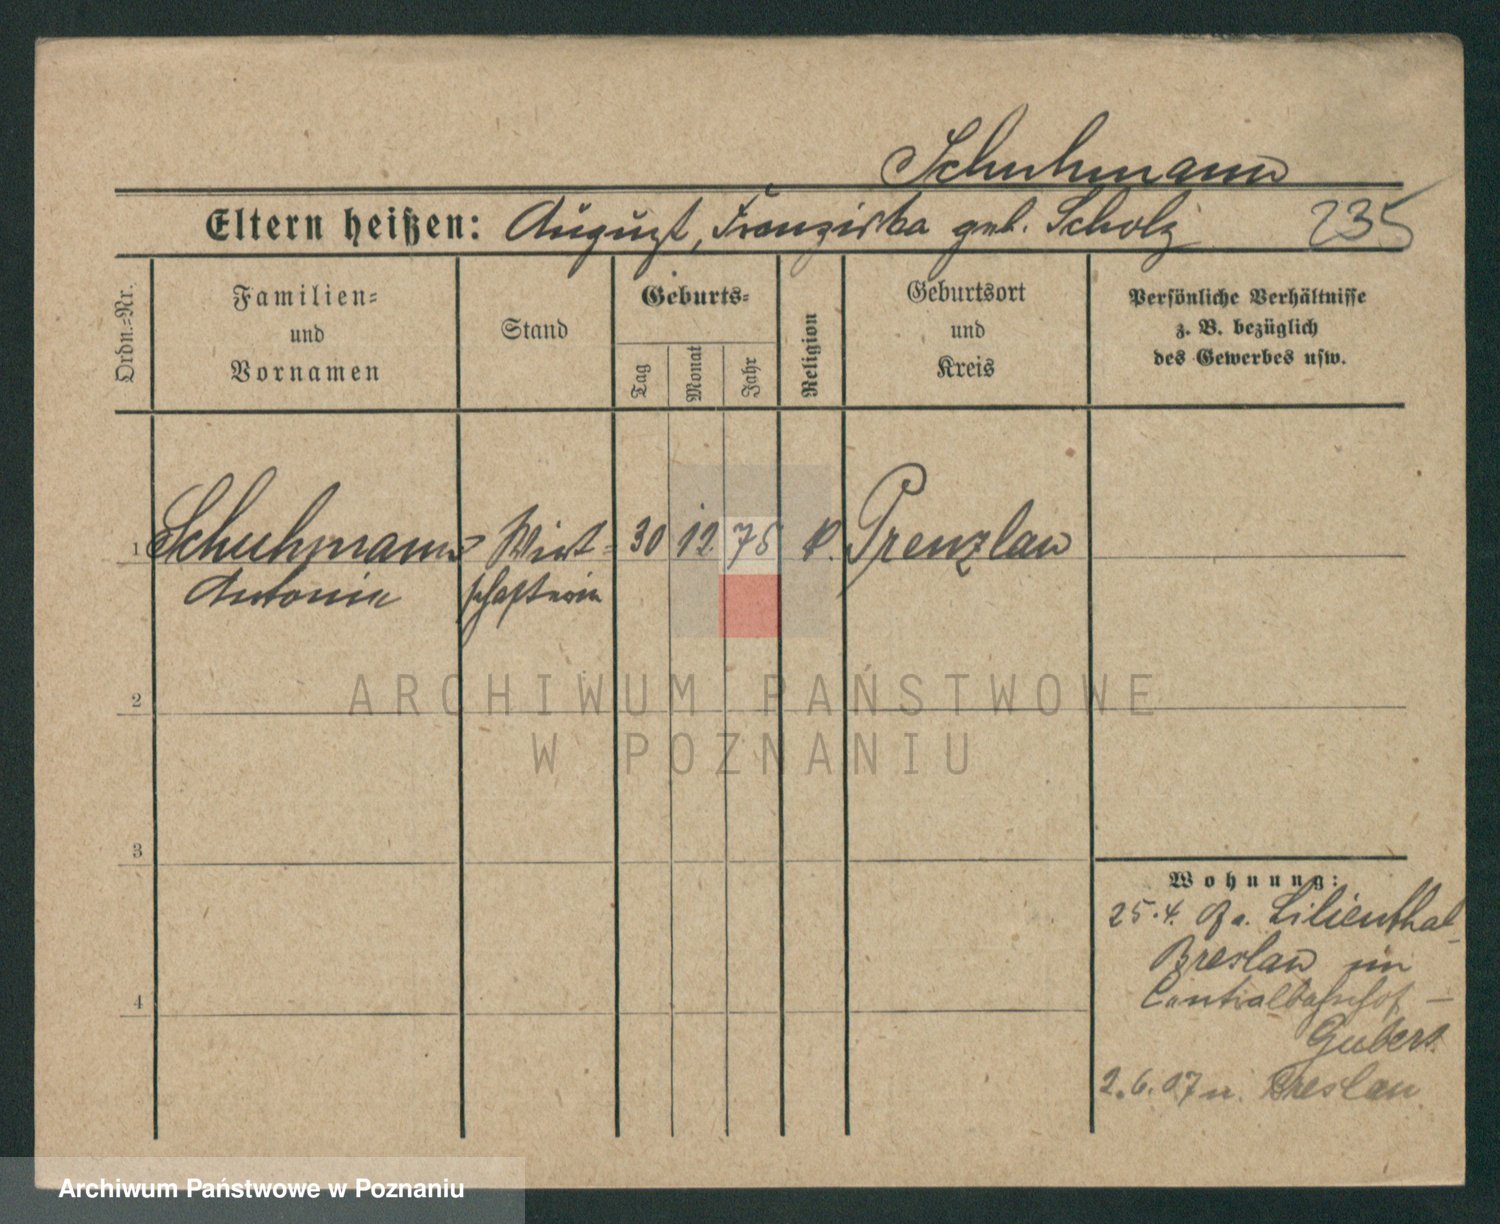 Schuhmann
Eltern heißen: August, Franziska geb. Scholz 235
Ordn.=Nr.
Familien=
und
Vornamen
Stand
Geburts=
Tag
Monat
Jahr
Religion
Geburtsort
und
Kreis
Persönliche Verhältnisse
z. B. bezüglich
des Gewerbes usw.
1 Schuhmann Wirt= 30 12 75 Prenzlau
Antonie schafterin
2
3
4
Wohnung:
25.4. Lilienthal-
Breslau im
Centralbahnhof –
2.6.07 n. Breslau
ARCHIWUM PAŃSTWOWE
W POZNANIU
Archiwum Państwowe w Poznaniu